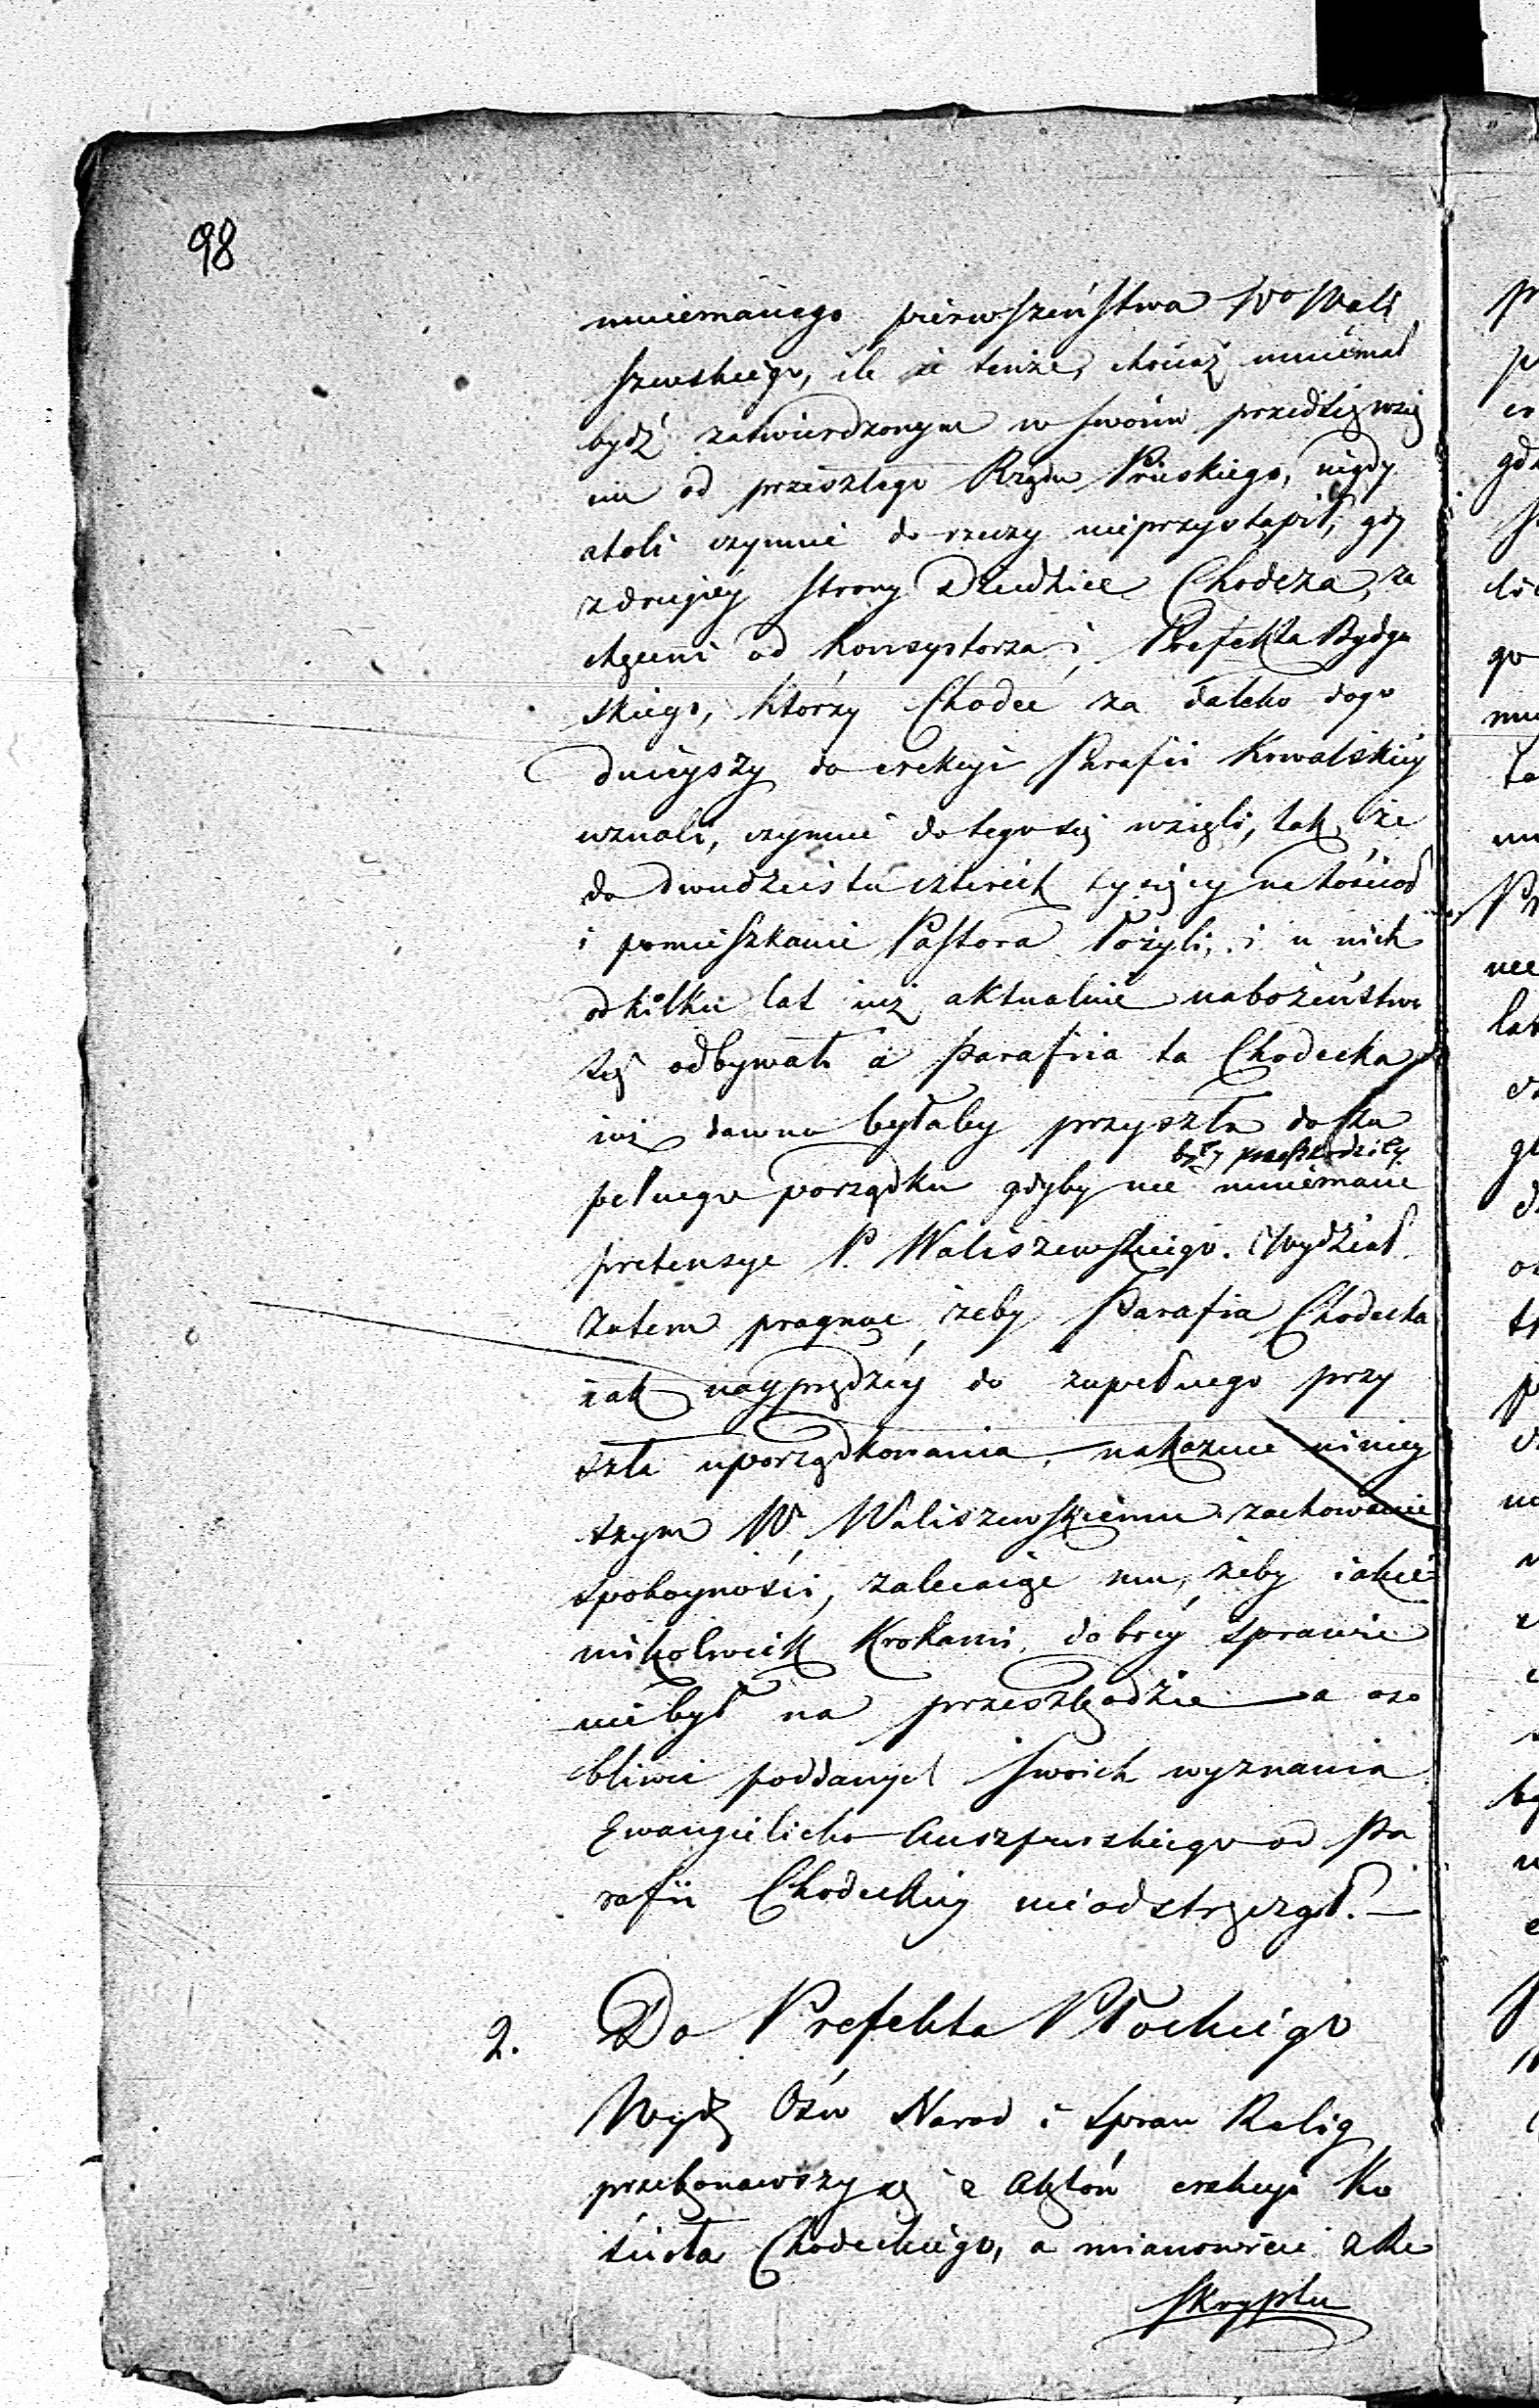 98
mniemanego pierwszeństwa Wo Wali
szewskiego, ile że tenże, chociaż mniemał
bydź zatwierdzonym w swoim przedsięwzię
ciu od przeszłego Rządu Pruskiego, nigdy
atoli czynnie do rzeczy nieprzystąpił, gdy
z drugiey strony Dziedzice Chodcza, za
chęceni od Konsystorza i Prefekta Bydgo
skiego, którzy Chodecz za daleko dogo
dnieyszy do erekcyi Parafii Kowalskiey
uznali, czynnie do tego się wzięli, tak, że
do dwudziestu czterech tysięcy na kościoł
i pomieszkanie Pastora łożyli, i u nich
od kilku lat iuż aktualnie nabożeństwo
się odbywało a parafia ta Chodecka
iuż dawno byłaby przyszła do zu
pełnego porządku gdyby nie mniemane
były przeszkodziły
pretensye P. Waliszewskiego. Wydział
zatem pragnąc, żeby Parafia Chodecka
iak nayprędzey do zupełnego przy
szła uporządkowania, nakazuie niniey
szym W. Waliszewskiemu zachowanie
spokoyności, zalecaiąc mu, żeby iakie
mikolwiek krokami dobrey sprawie
niebył na przeszkodzie a oso
bliwie poddanych swoich wyznania
Ewangielicko Auszpurskiego od Pa
rafii Chodeckiey nieodstręczał. —
2. Do Prefekta Płockiego
Wydz Ośw Narod i Spraw Relig
przekonawszy się z Aktów erekcyi Ko
ścioła Chodeckiego, a mianowicie z Re
skryptu